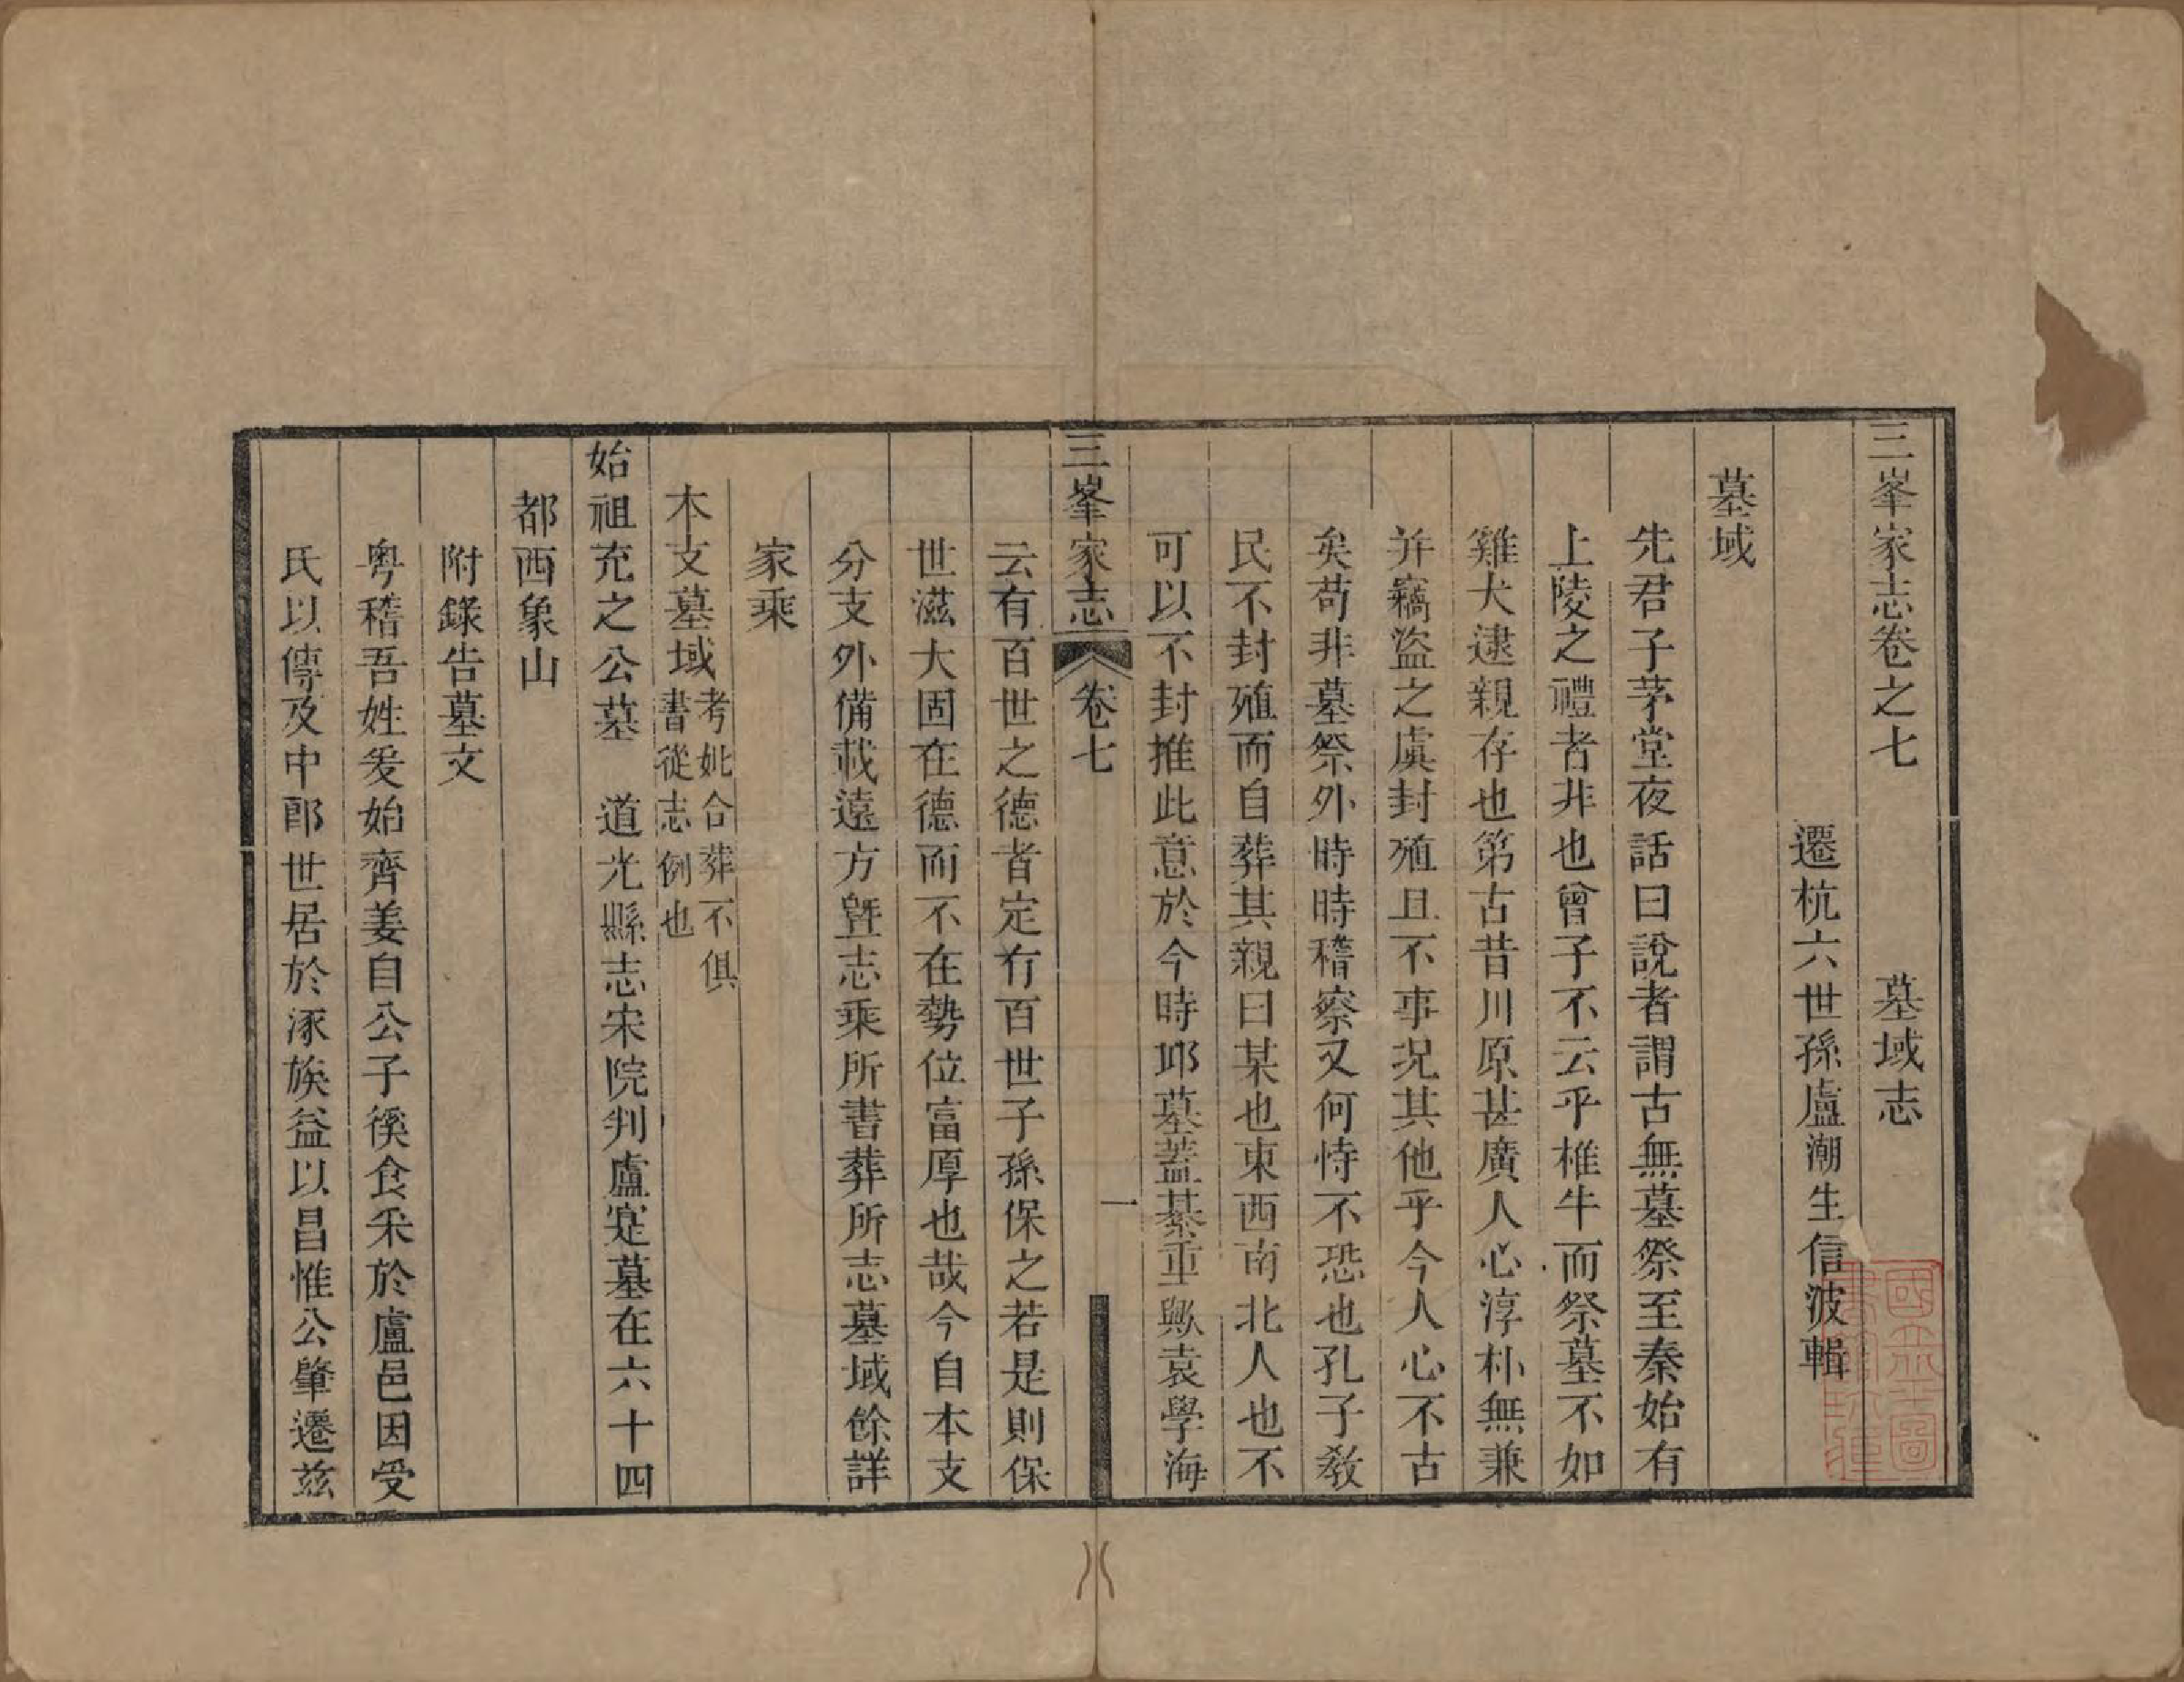 三峯家志卷之七　　　墓域志
遷杭六世孫盧潮生信波輯
墓域
先君子茅堂夜話曰說者謂古無墓祭至秦始有
上陵之禮者非也曾子不云乎椎牛而祭墓不如
雞犬逮親存也第古昔川原甚廣人心淳朴無兼
并竊盜之虞封殖且不事況其他乎今人心不古
矣苟非墓祭外時時稽察又何恃不恐也孔子教
民不封殖而自葬其親曰某也東西南北人也不
可以不封推此意於今時邱墓蓋綦重歟袁學海
三峯家志　卷七　一
云有百世之德者定有百世子孫保之若是則保
世滋大固在德而不在勢位富厚也哉今自本支
分支外備載遠方曁志乘所書葬所志墓域餘詳
家乘
木支墓域考妣合葬不俱
書從志例也
始祖充之公墓　道光縣志宋院判盧寔墓在六十四
都西象山
附錄告墓文
粵稽吾姓爰始齊姜自公子徯食采於盧邑因受
氏以傳及中郎世居於涿族益以昌惟公肇遷兹